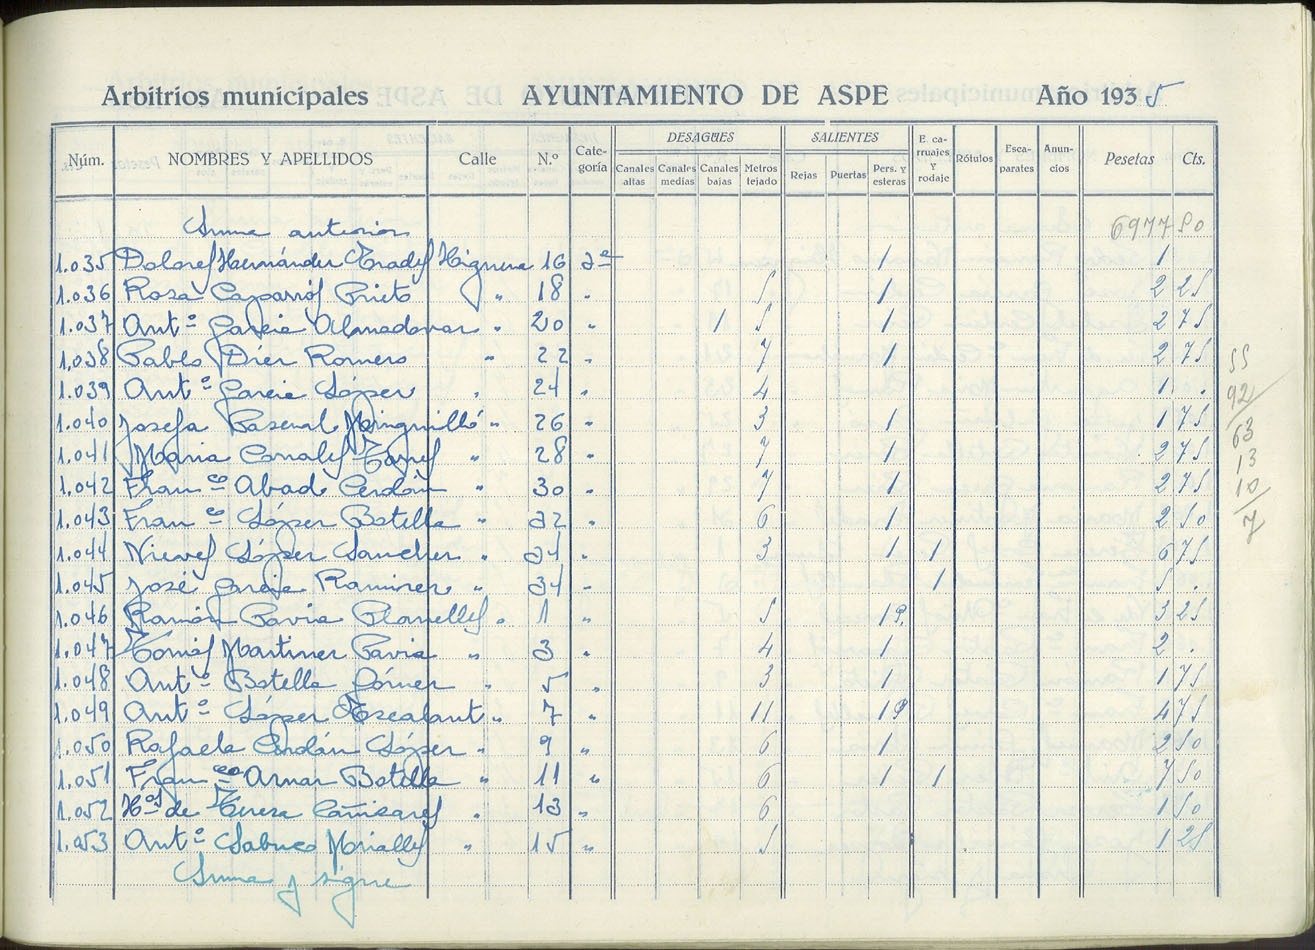 Arbitrios municipales AYUNTAMIENTO DE ASPE Año 1935
Núm. NOMBRES Y APELLIDOS Calle N.º Cate-goría DESAGÜES Canales altas Canales medias Canales bajas Metros tejado SALIENTES Rejas Puertas Pers. y esteras E. ca-rruajes y rodaje Rótulos Esca-parates Anun-cios Pesetas Cts.
Suma anterior 6977 50
1.035 Dolores Hernández Prades Higuera 16 2ª 1 1
1.036 Rosa Caparrós Prieto " 18 " 5 1 2 25
1.037 Antº García Almodovar " 20 " 1 5 1 2 75
1.038 Pablo Díez Romero " 22 " 7 1 2 75
1.039 Antº García López " 24 " 4 1 .
1.040 Josefa Pascual Minguilló " 26 " 3 1 1 75
1.041 María Corrales Torres " 28 " 7 1 2 75
1.042 Franco Abad Cerdán " 30 " 7 1 2 75
1.043 Franco López Botella " 32 " 6 1 2 50
1.044 Nieves López Sánchez " 34 " 3 1 1 6 75
1.045 José García Ramírez " 34 " 1 5 .
1.046 Ramón Pavía Planelles " 1 " 5 1 P. 3 25
1.047 Tomás Martínez Pavía " 3 " 4 1 2 .
1.048 Antº Botella Gómez " 5 " 3 1 1 75
1.049 Antº López Escalant " 7 " 11 1 P 4 75
1.050 Rafaela Cerdán López " 9 " 6 1 2 50
1.051 Franco Aznar Botella " 11 " 6 1 1 7 50
1.052 Hos de Teresa Cañizares " 13 " 6 1 50
1.053 Antº Sabuco Miralles " 15 " 5 1 25
Suma y sigue
55
92
63
13
10
7